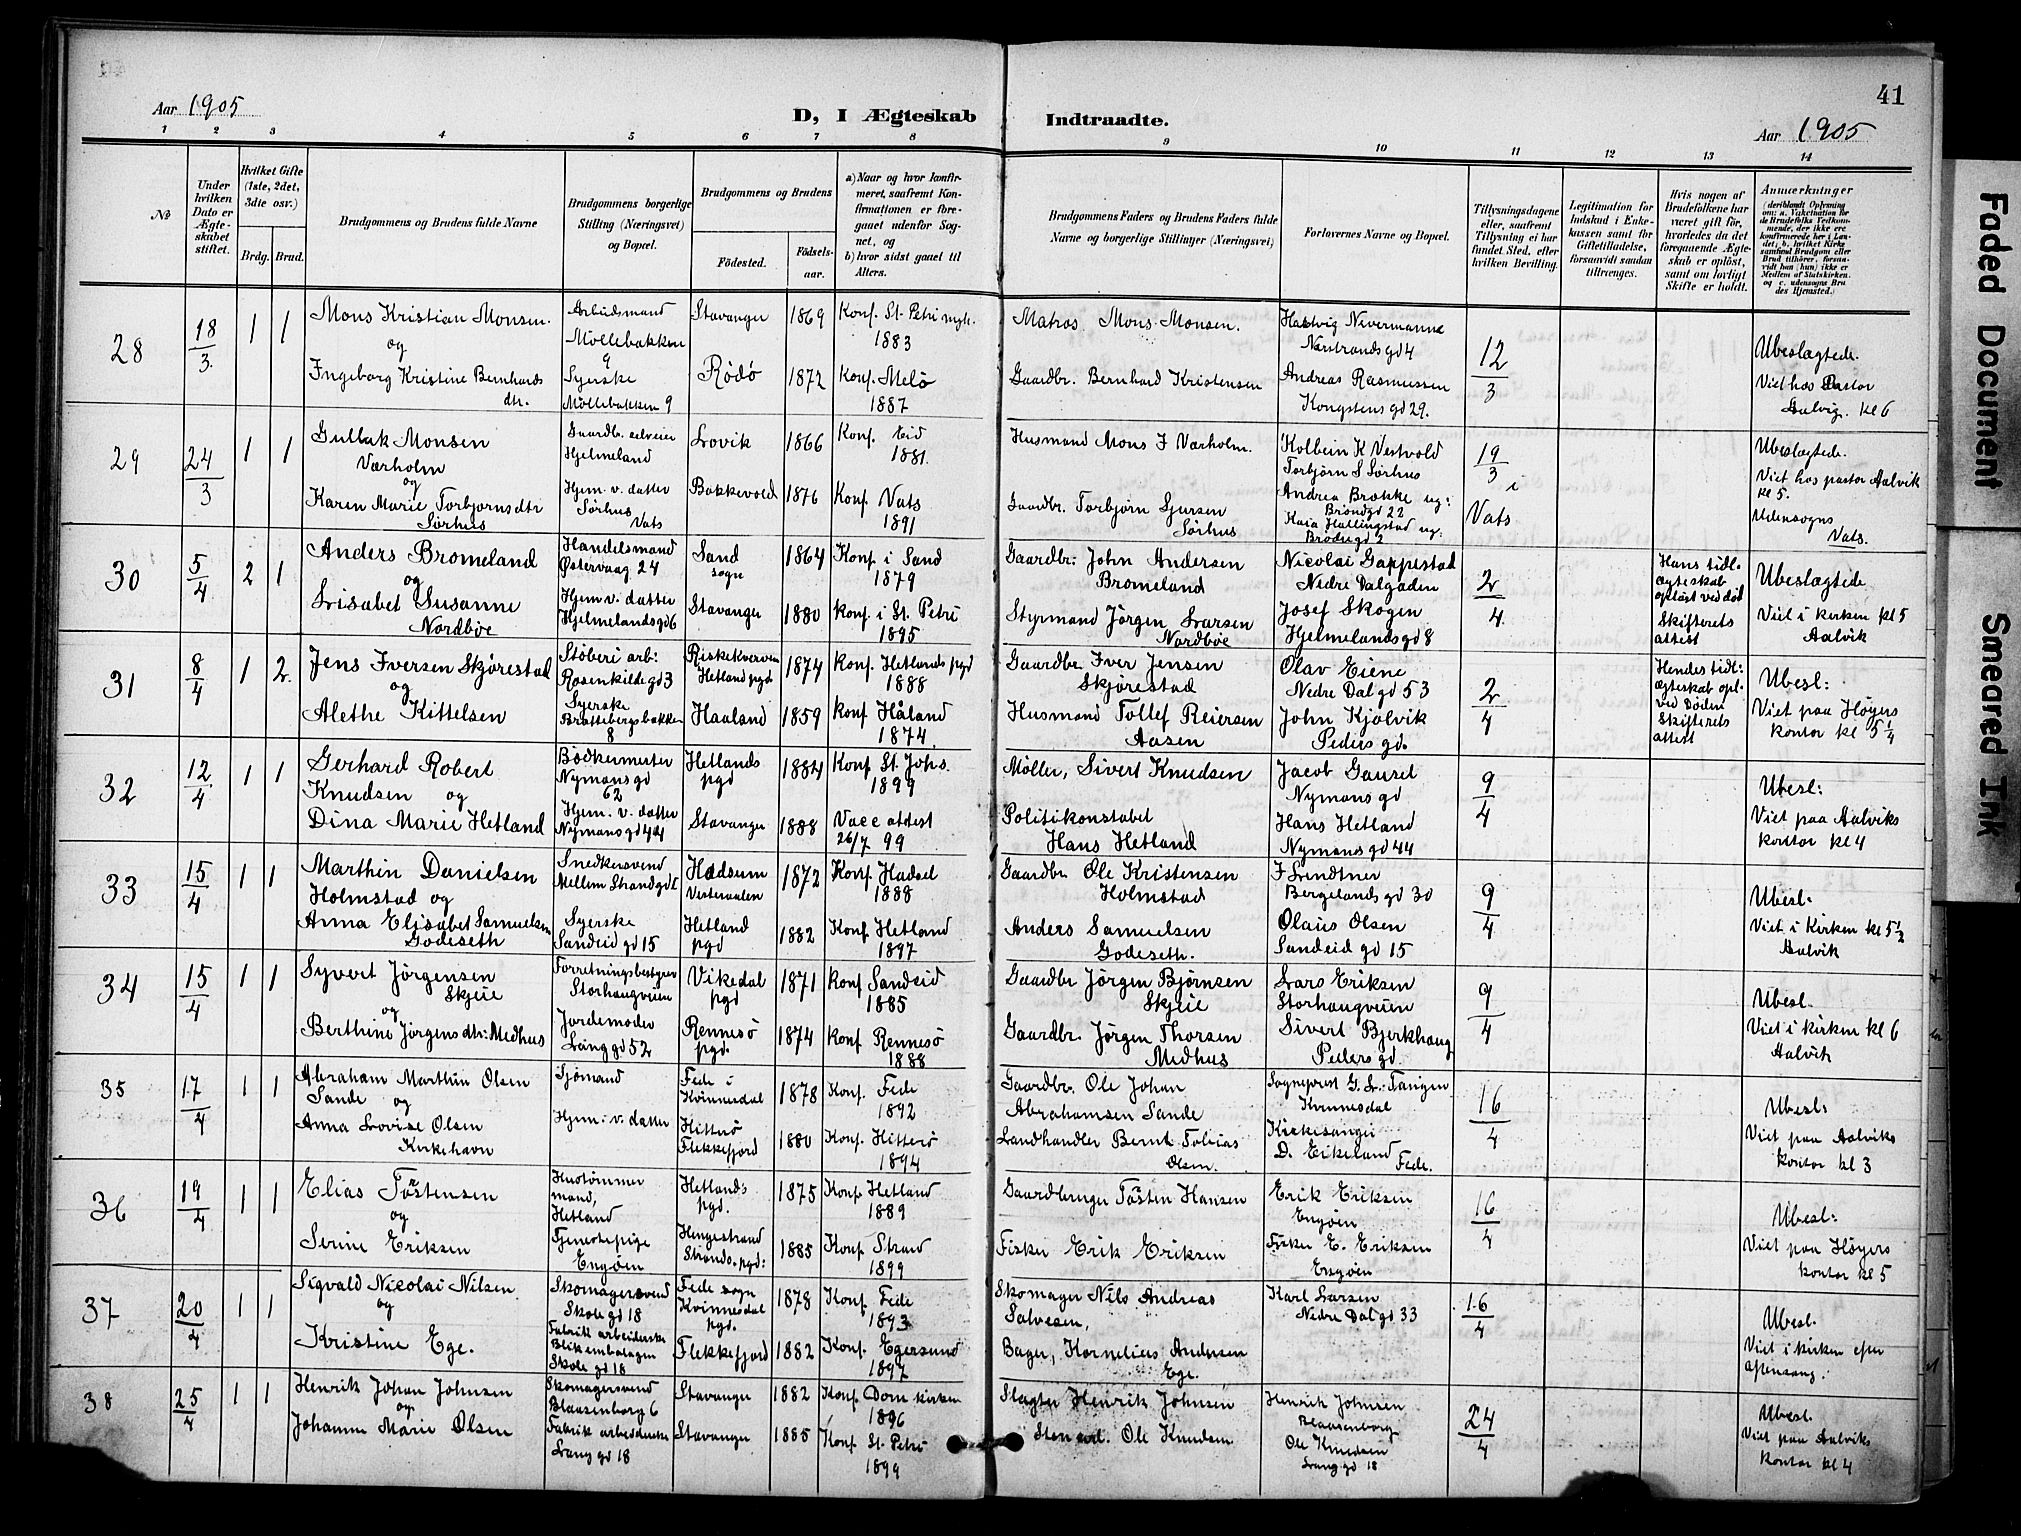 41
Aar 1905
D, I Ægteskab Indtraadte.
Aar 1905
1 2 3 4 5 6 7 8 9 10 11 12 13 14
No
Under hvilken Dato er Ægteskabet stiftet.
Hvilket Gifte (1ste, 2det, 3die osv.)
Brdg. Brud.
Brudgommens og Brudens fulde Navne
Brudgommens borgerlige Stilling (Næringsvei) og Bopæl.
Brudgommens og Brudens
Födested. Födsels-aar.
a) Naar og hvor konfirmeret, saafremt Konfirmationen er foregaaet udenfor Sognet, og
b) hvor sidst gaaet til Alters.
Brudgommens Faders og Brudens Faders fulde Navne og borgerlige Stillinger (Næringsvei)
Forlovernes Navne og Bopæl.
Tillysningsdagene eller, saafremt Tillysning ei har fundet Sted, efter hvilken Bevilling.
Legitimation for Indskud i Enkekassen samt for Giftetilladelse, forsaavidt saadan tiltrænges.
Hvis nogen af Brudefolkene har været gift för, hvorledes da det foregaaende Ægteskab er oplöst, samt om lovligt Skifte er holdt.
Anmærkninger (deriblandt Oplysning om: a. Vakcination for de Brudefolks Vedkommende, der ikke ere konfirmerede her i Landet; b. hvilket Kirkesamfund Brudgom eller Brud tilhörer, forsaavidt han (hun) ikke er Medlem af Statskirken. og c. udensogns Brudes Hjemsted.)
28 18/3 1 1
Mons Kristian Monsen
og
Ingeborg Kristine Bernhardsdtr.
Arbeidsmand Möllebakken 9
Syerske Möllebakken 9
Stavanger 1869 Konf. St. Petri mgh. 1883
Rödö 1872 Konf. Melö 1887
Matros Mons Monsen.
Gaardbr. Bernhard Kristensen
Hartvig Nivermanne Nørstrandsgd 4
Andreas Rasmussen Kongstensgd 29.
12/3
Ubeslægtede.
Viet hos Pastor Aalvig. kl 6
29 24/3 1 1
Gullak Monsen Værholm
og
Karen Marie Torbjørnsdtr Sørhus
Gaardbr. selveier Hjelmeland
Hjem. v. datter Sørhus Vats
Lovik 1866 Konf. Eid 1881.
Bakkevold 1876 Konf Vats 1891
Husmand Mons J Værholm.
Gaardbr. Torbjørn Gjursen Sørhus
Kolbein K Vestvold
Torbjörn S Sørhus
Andrea Brokke ug: Bröndgd 22
Kaia Hallingstad ug: Brødregd 2
19/3 i Vats
Ubeslægtede.
Viet hos pastor Aalvik kl 5.
Udensogns Vats.
30 5/4 2 1
Anders Bromeland
og
Lisabet Susanne Nordböe
Handelsmand Østervaag 24
Hjem v. datter Hjelmelandsgd 6
Sand sogn 1864 Konf i Sand 1879
Stavanger 1880 Konf i St. Petri 1895
Gaardbr: John Andersen Bromeland
Styrmand Jörgen Larsen Nordböe
Nicolai Gappestad Nedre Dalgaden
Josef Skogen Hjelmelandsgd 8
2/4
Hans tidl. ægteskab oplöst ved död Skifterets attest
Ubeslægtede
Viet i kirken kl 5 Aalvik
31 8/4 1 2.
Jens Iversen Skjørestad
og
Alethe Kittelsen
Støberi arb: Rosenkildegd 3
Syerske Brattebergsbakken 8
Riskekverven Hetland pgd. 1874 Konf. Hetlands pgd 1888
Haaland 1859 Konf Håland 1874.
Gaardbr Iver Jensen Skjørestad
Husmand Tollef Reiersen Aasen
Olav Eiene Nedre Dal gd 53
John Kjölvik Pedersgd.
2/4
Hendes tidl: ægteskab opl. ved Döden Skifterets attest
Ubesl:
Viet paa Höyers kontor kl 5 1/4
32 12/4 1 1
Gerhard Robert Knudsen og
Dina Marie Hetland
Bödkermester Nymansgd 62
Hjem. v. datter Nymansgd 44
Hetlands pgd 1884 Konf St. Johs. 1899
Stavanger 1888 Vacc attest 26/7 99
Møller, Sivert Knudsen
Politikonstabel Hans Hetland
Jacob Gausel Nymansgd
Hans Hetland Nymansgd 44
9/4
Ubesl:
Viet paa Aalviks kontor kl 4
33 15/4 1 1
Marthin Danielsen Holmstad og
Anna Elisabet Samuelsen Godeseth
Snedkersvend Mellem Strandgd
Syerske Sandeid gd 15
Hadsum Vesteraalen 1872 Konf Hadsel 1888
Hetland pgd 1882 Konf Hetland 1897
Gaardbr Ole Kristensen Holmstad
Anders Samuelsen Godeseth.
J Svendtner Bergelands gd 30
Olaus Olsen Sandeid gd 15
9/4
Ubesl:
Viet i Kirken kl 5 1/2 Aalvik
34 15/4 1 1
Syvert Jörgensen Skjeie
og
Berthine Jörgensdtr: Medhus
Forretningsbestyrer Storhaugveien
Jordemoder Langgd 52
Vikedal pgd 1871 Konf Sandeid 1885
Rennesö pgd. 1874 Konf Rennesö 1888
Gaardbr Jörgen Björnsen Skjeie
Gaardbr. Jörgen Thorsen Medhus
Lars Eriksen Storhaugveien
Sivert Bjerkhaug Pedersgd.
9/4
Ubesl.
Viet i kirken kl 6 Aalvik
35 17/4 1 1
Abraham Marthin Olsen Sande og
Anna Lovise Olsen Kirkehavn
Sjömand
Hjem: v. datter
Fede i Kvinnesdal 1878 Konf. Fede 1892
Hitterö Flekkefjord 1880 Konf. Hitterö 1894
Gaardbr. Ole Johan Abrahamsen Sande
Landhandler Bernt Tobias Olsen.
Sogneprest G. L. Tangen Kvinnesdal
Kirkesanger D. Eikeland Fede.
16/4
Ubesl:
Viet paa Aalviks kontor kl 3
36 19/4 1 1
Elias Töstensen
og
Serine Eriksen
Hustömmermand, Hetland
Tjenestepige Engöen
Hetlands pgd. 1875 Konf. Hetland 1889
Hengestrand Strands. pgd: 1885 Konf Strand 1899
Gaardbruger Tösten Hansen
Fisker Erik Eriksen
Erik Eriksen Engöen
Fisker E. Eriksen Engöen
16/4
Ubesl:
Viet paa Höyers kontor kl 5
37 20/4 1 1
Sigvald Nicolai Nilsen
og
Kristine Ege.
Skomagersvend Skolegd 18
Fabrik arbeiderske Blikemballagen Skole gd 18
Fede sogn Kvinnesdal pgd. 1878 Konf. Fede 1893
Flekkefjord 1882 Konf. Egersund 1897
Skomager Nils Andreas Salvesen,
Bager, Kornelius Andersen Ege.
Karl Larsen Nedre Dal gd 33
16/4
Ubesl.
Viet i kirken efter aftensang.
38 25/4 1 1
Henrik Johan Johnsen
og
Johanne Marie Olsen
Skomagersvend Blaasenborg 6
Fabrik arbeiderske Langgd 18
Stavanger 1882 Konf. Dom kirken 1896
Stavanger 1885 Konf St. Petri 1899
Slagter Henrik Johnsen
Sten arb. Ole Knudsen
Henrik Johnsen Blaasenborg
Ole Knudsen Langgd 18
24/4
Ubesl.
Viet paa Aalviks kontor kl 4
Faded Document
Smeared Ink